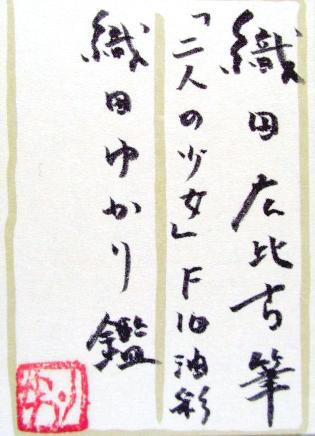 織田広比古筆
「二人の少女」F10油彩
織田ゆかり鑑